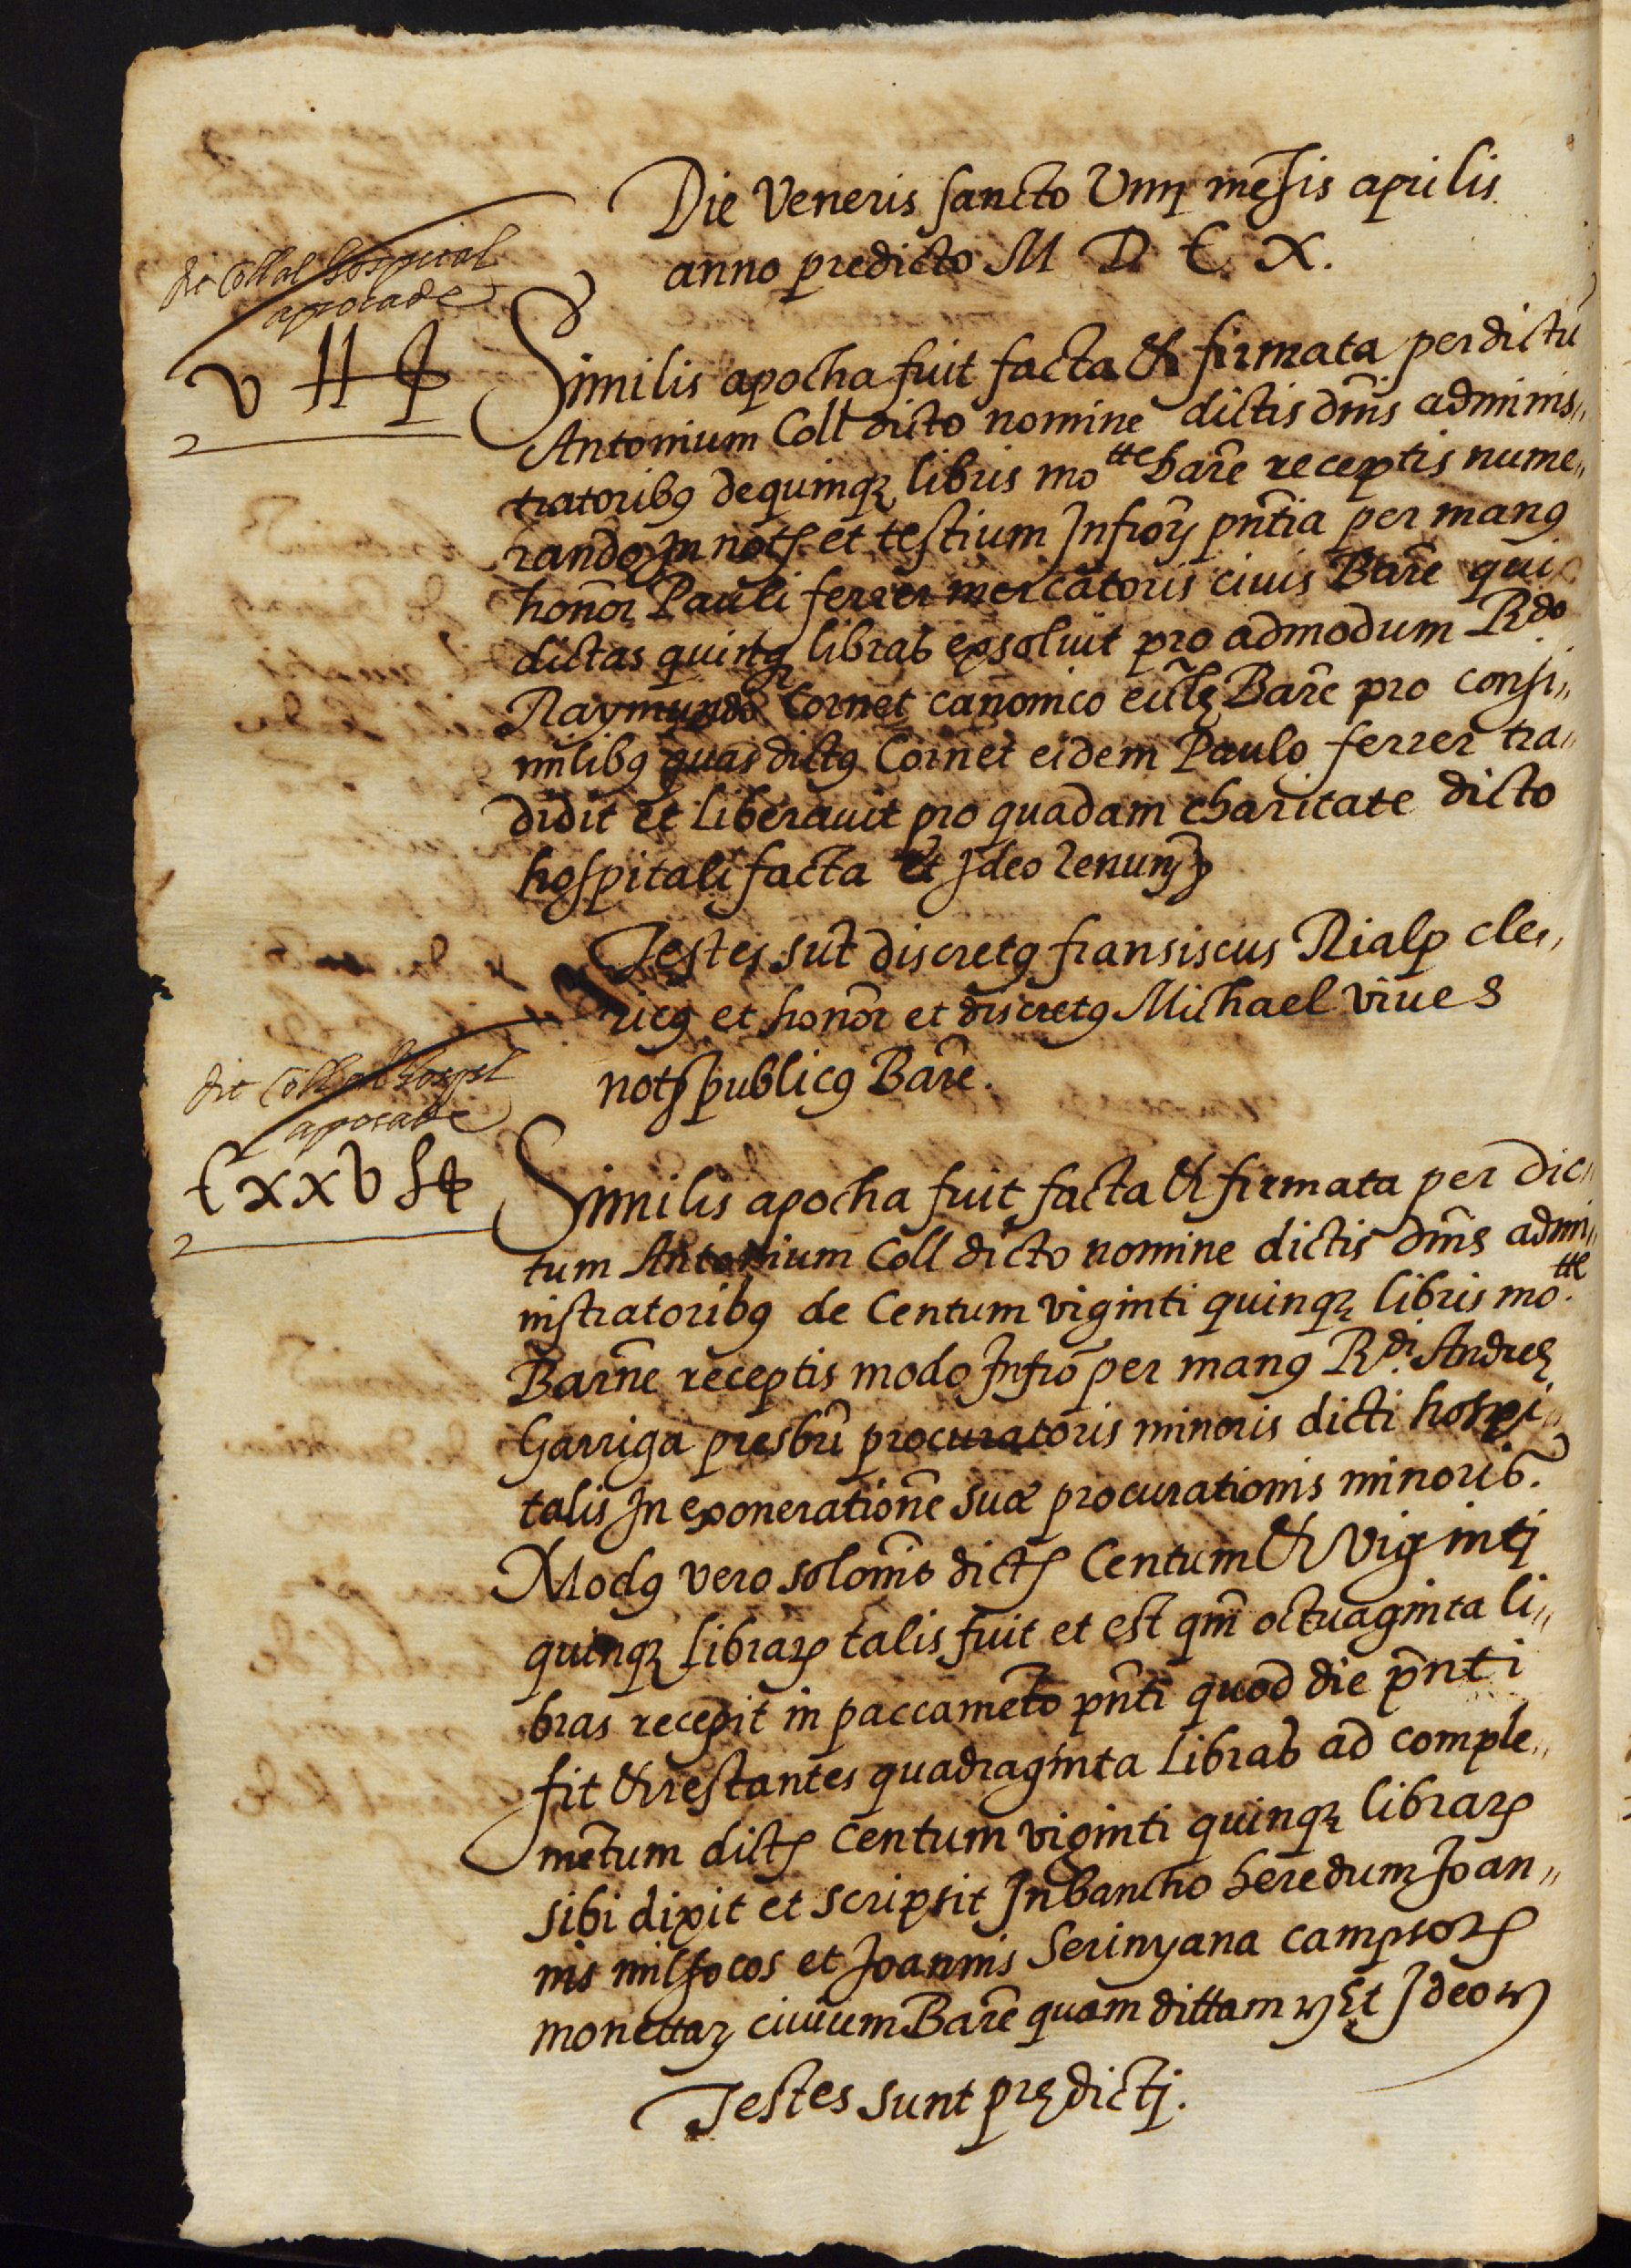 Die Veneris sancto Vnnȷ mēsis aprilis
anno predicto M D C. X.
dit Coll al hospital
apocade
v ℔
Similis apocha fuit facta & firmata per dictū
Antonium Coll dicto nomine dictis dn̄is adminis„
tratoribꝯ de quinqꝫ libris mo^tte barn̄e receptis nume„
rando In notꝭ et testium Infrōꝝ pn̄tia per manꝯ
honōr Pauli ferrer mercatoris ciuis Barn̄e qui
dictas quinqꝫ libras exsoluit pro admodum R.^do
Raymundo Cornet canonico eccl̄ę Barn̄e pro consi„
milibꝯ quas dictꝯ Cornet eidem Paulo ferrer tra„
didit et liberauit pro quadam charitate dicto
hospitali facta Et Ideo renunꝫ
Testes sūt discretꝯ fransiscus Rialp cle„
ricꝯ et honōr et discretꝯ Michael viues
notꝭ publicꝯ Barn̄e.
dit Coll al hospl
apocade
Cxxv ℔
Similis apocha fuit facta & firmata per dic„
tum Antonium Coll dicto nomine dictis dn̄is admi„
nistratoribꝯ de Centum viginti quinqꝫ libris mo.^tte
Barn̄e receptis modo Infrō per manꝯ R.^di Andreę
Garriga presbr̄i procuratoris minoris dicti hospi„
talis In exoneratione suæ procurationis minoris.
Modꝯ vero solōnis dictꝭ Centum & viginti
quinqꝫ Librarꝝ talis fuit et est qm̄ octuaginta li„
bras recepit in paccamēto pn̄ti quod die pn̄nti
fit & restantes quadraginta Libras ad comple„
mētum dictꝭ Centum viginti quinqꝫ librarꝝ
sibi dixit et scripsit In bancho heredum Joan„
nis milsocos et Joannis Serinyana campsorꝭ
monettaꝝ ciuium Barn̄e quam dittam ꝛ Et Ideo ꝛ
Testes sunt prędictj.